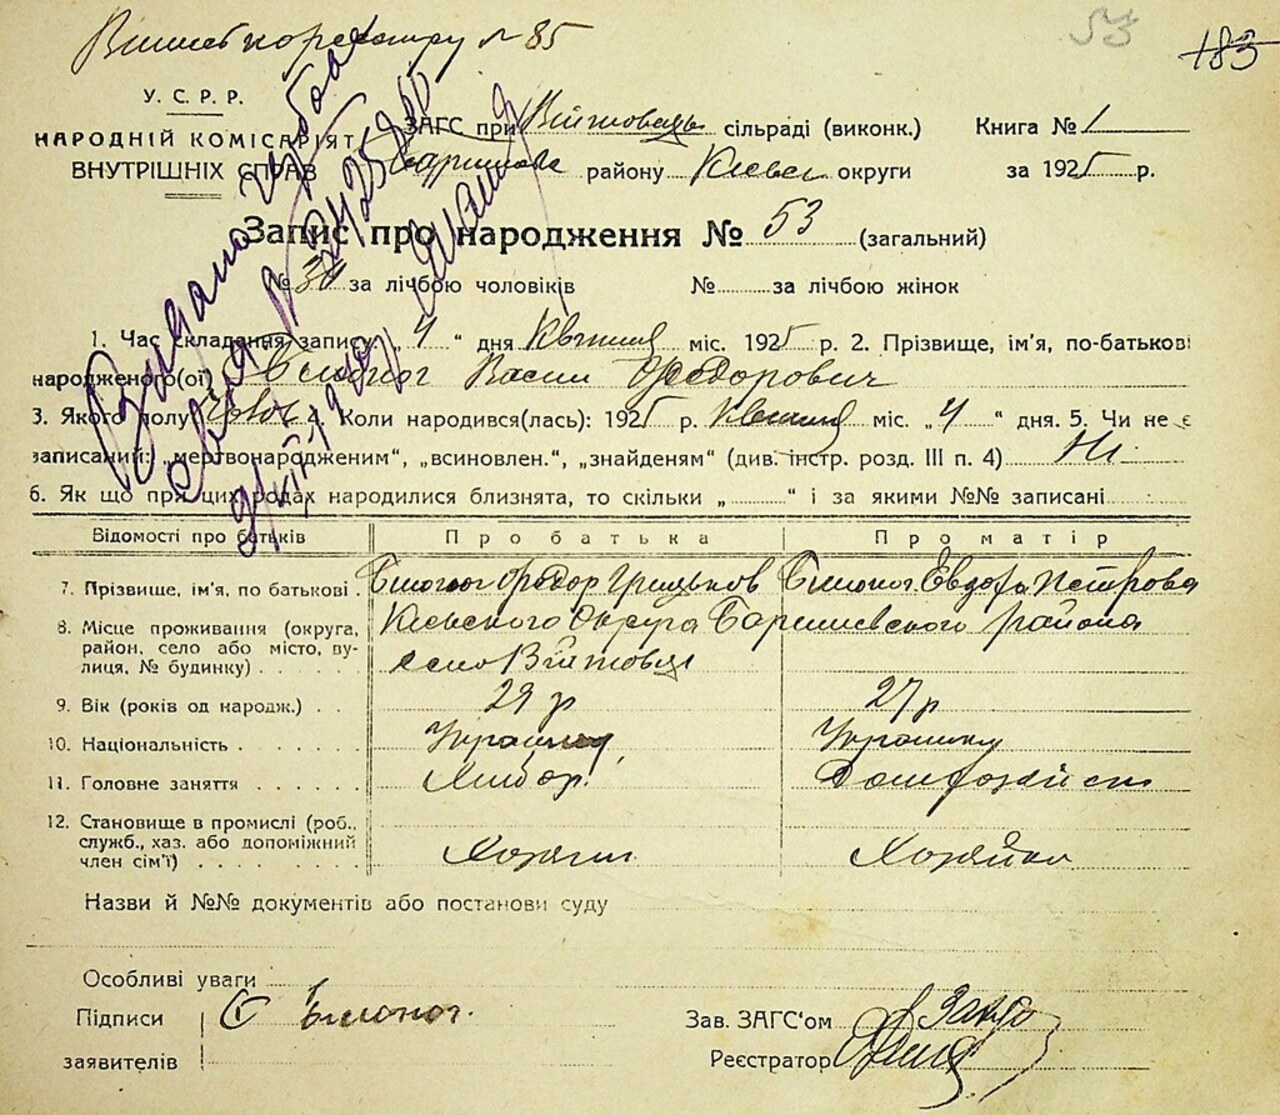 Витяг по реєстру № 85
53
183
У. С. Р. Р.
НАРОДНІЙ КОМІСАРІЯТ
ВНУТРІШНІХ СПРАВ
ЗАГС при Війтовець сільраді (виконк.)
Книга № 1
району Київськ округи
за 1925 р.
Запис про народження № 53 (загальний)
№ 30 за лічбою чоловіків № за лічбою жінок
1. Час складання запису: „ 4 “ дня Квітня міс. 1925 р. 2. Прізвище, ім’я, по-батькові
народженого(ої) Білоног Васил Федорович
3. Якого полу Чолов 4. Коли народився(лась): 1925 р. Квітня міс. „ 4 “ дня. 5. Чи не є
записаний: „мертвонародженим“, „всиновлен.“, „знайденям“ (див. інстр. розд. III п. 4) Ні
6. Як що при цих родах народилися близнята, то скільки „ “ і за якими №№ записані
Відомості про батьків Про батька Про матір
7. Прізвище, ім’я, по батькові . Білоног Федор Грицьков Білоног Евдоха Петрова
8. Місце проживання (округа, район, село або місто, вулиця, № будинку) . . Киевского Округа Баришевского района
село Війтовці
9. Вік (років од народж.) . . 29 р 27 р
10. Національність . . . . . . . Українец Украинка
11. Головне заняття . . . . . . Хлібор. Домохозяйст
12. Становище в промислі (роб., служб., хаз. або допоміжний член сім’ї) . . . . . . . . Хозяин Хозяйка
Назви й №№ документів або постанови суду
Особливі уваги
Підписи
заявителів
Ф Білоног.
Зав. ЗАГС’ом
Реєстратор
Видано